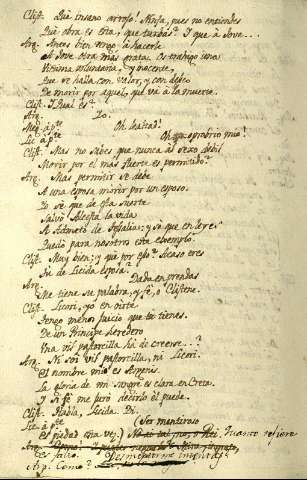 Clist. Què insano arrojo! Ninfa, pues no entiendes
Què obra es esta, que turbas? Y que à Jove...
Arg. Antes bien vengo à hacerle
A Jove otra mas grata. os trahigo una
Victima voluntaria, y inocente,
Que se halla con valor, y con deseo
De morir por aquel, que và à la muerte.
Clist. Y qual es?
Arg. Yo.
Meg. ap.te Oh lealtad!
Lic. ap.te Oh oprobrio mio!
Clist. Mas no sabes que nunca al sexo debil
Morir por el mas fuerte es permitido?
Arg. Mas permitir se debe
A una esposa morir por un esposo.
Yo sè que de esta suerte
Salvò Alcesta la vida
A Admeto de Tesalia; y sè que en ley
Quedò para nosotros este exemplo.
Clist. Muy bien; y què por eso? Acaso eres
Tu de Licida esposa?
Arg. Dada en prendas
Me tiene su palabra, y fè, o Clistene.
Clist. Licori, yo en oirte
Tengo menos juicio que tu tienes.
De un Principe heredero
Una vil pastorcilla hà de creerse...?
Arg. Ni soi vil pastorcilla, ni Licori.
El nombre mio es Argenis.
La gloria de mi sangre es clara en Creta.
Y si fè me juró decirlo èl puede.
Clist. Habla, Licida. Di.
Lic. ap.te (Ser mentiroso
Es piedad esta vez.) Rei, quanto refiere
Es falso.
Arg. Como?